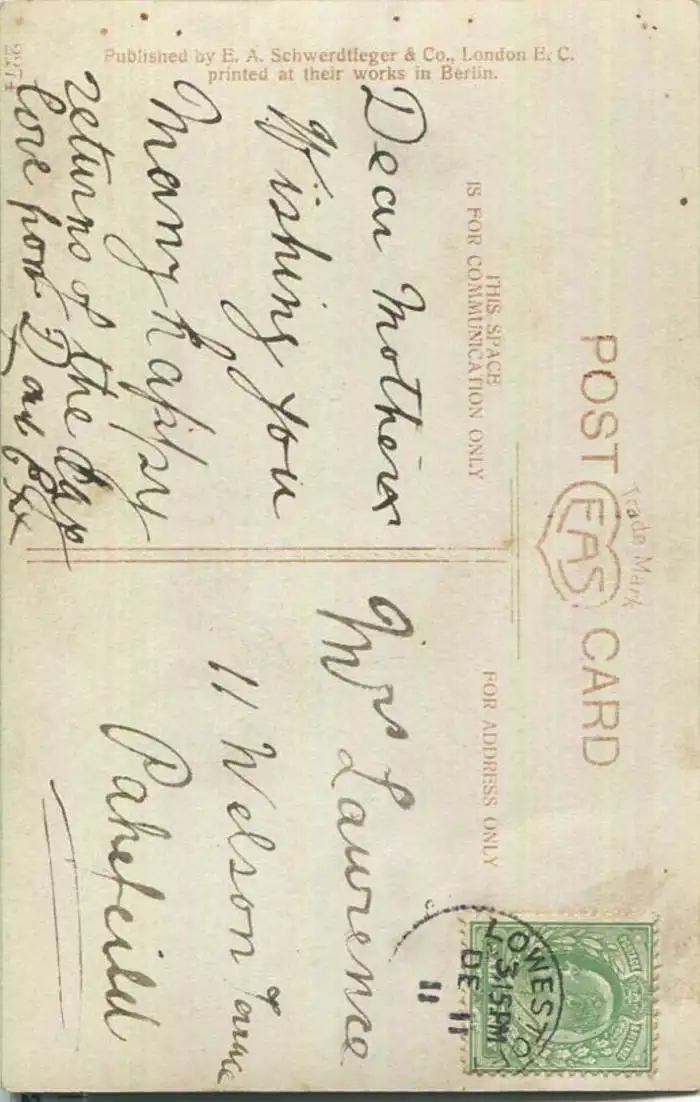 Published by E. A. Schwerdtfeger & Co., London E. C.
printed at their works in Berlin.
POST CARD
EAS
Trade Mark
THIS SPACE
IS FOR COMMUNICATION ONLY
FOR ADDRESS ONLY
Dear Mother x
Wishing you
Many happy
returns of the
love from
Mrs Lawrence
11 Welson Terrace
Pakefeild
LOWESTOFT
315 PM
DE 11
11